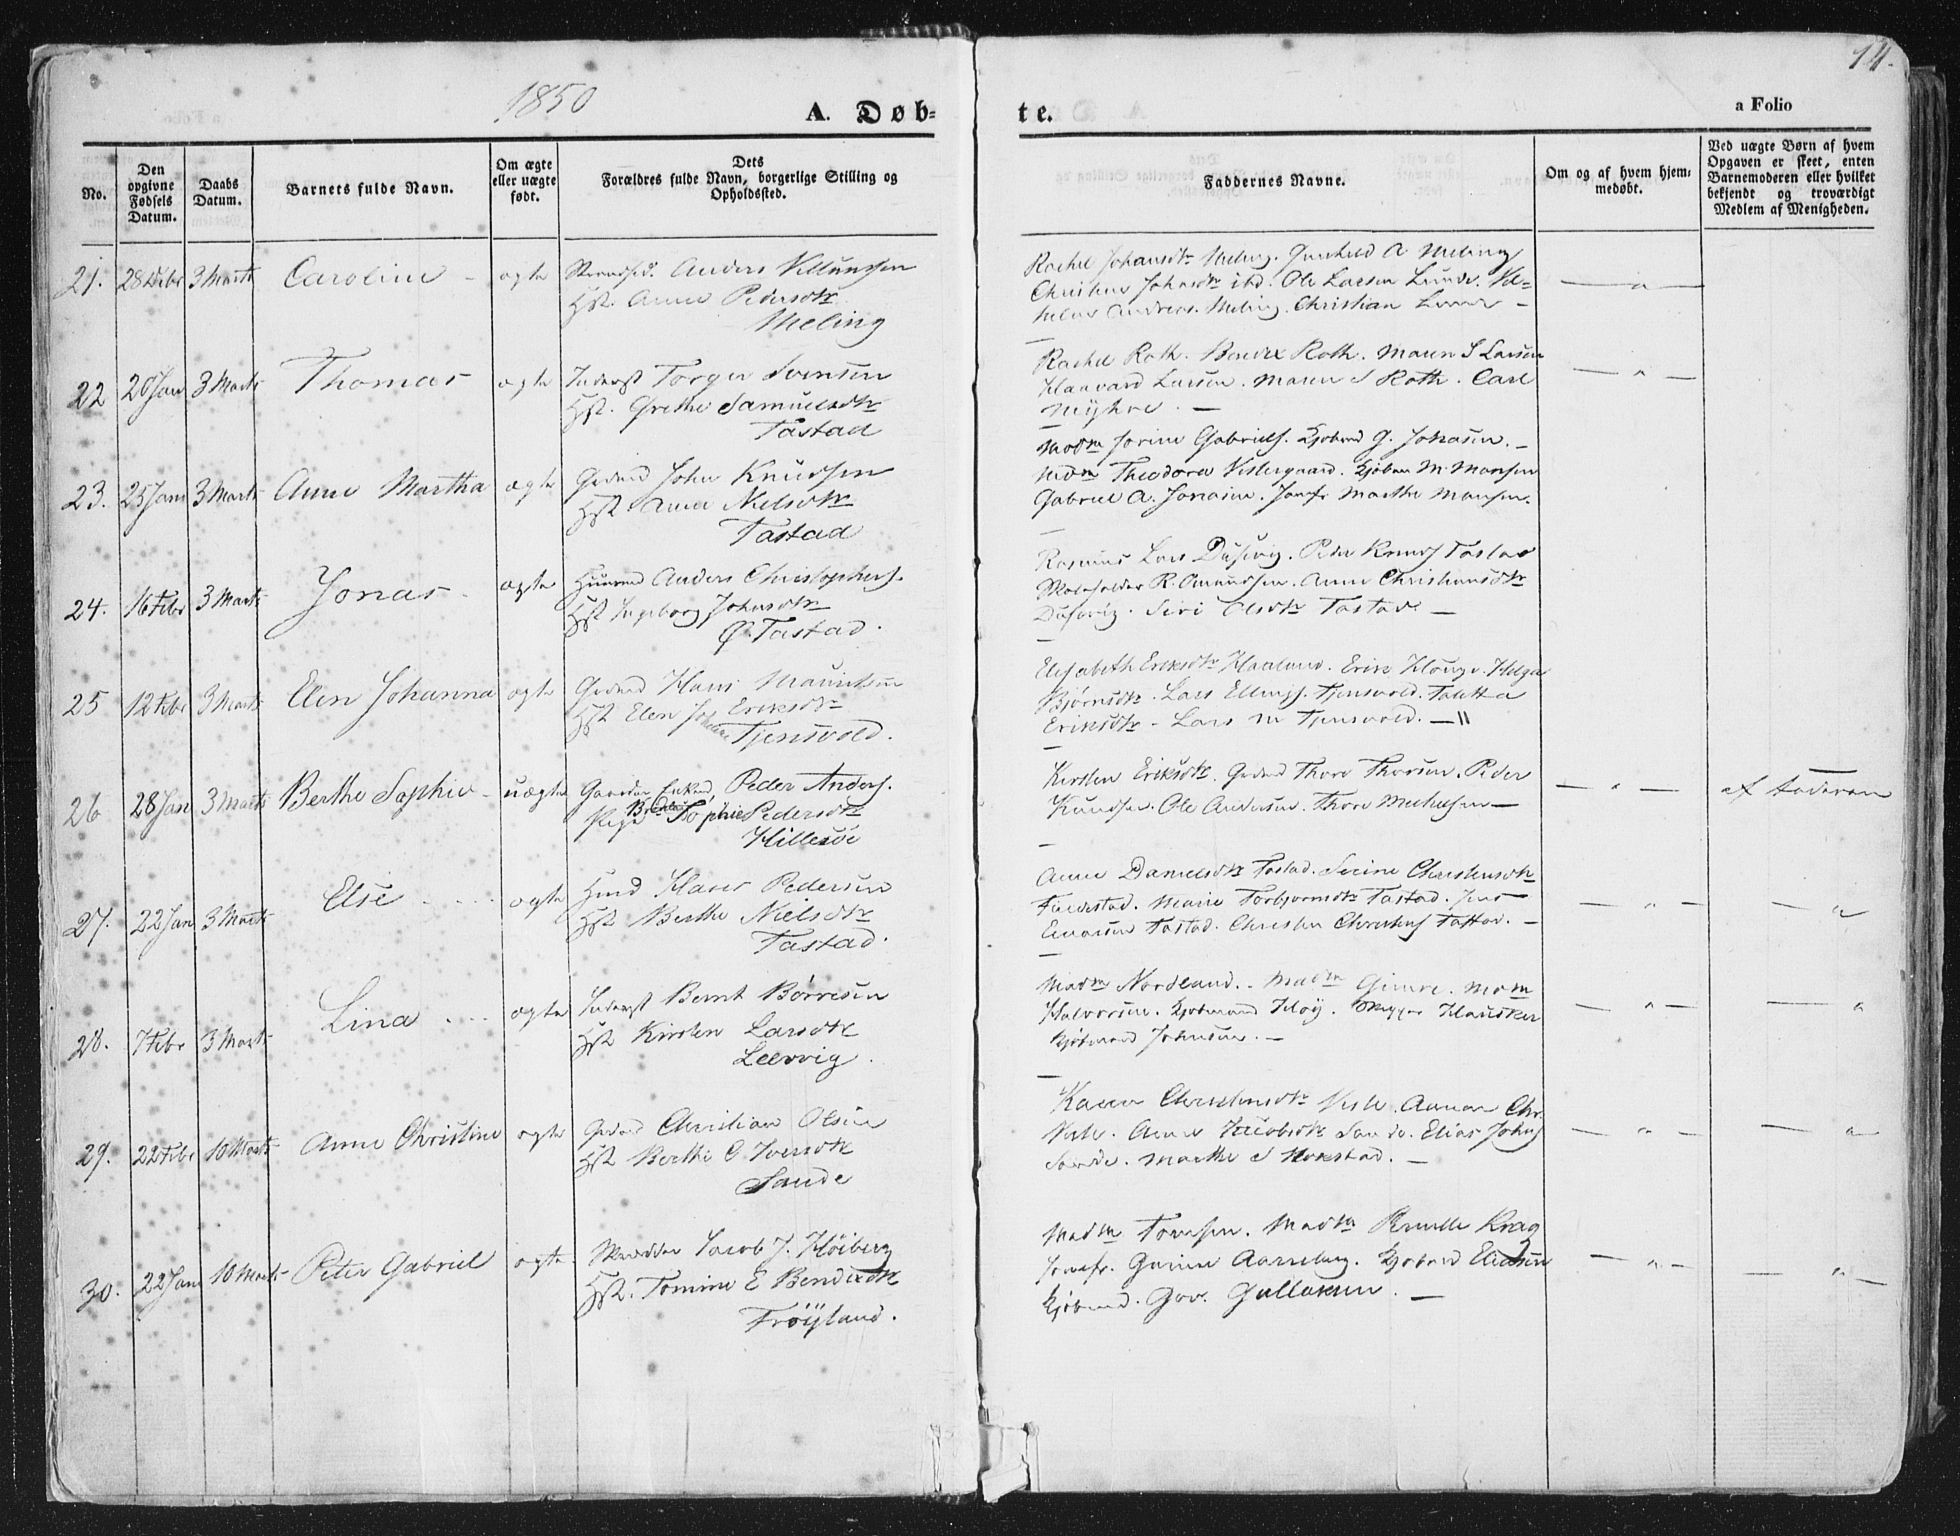 1850
14.
A. Døb-
te.
a Folio
No.
Den opgivne Fødsels Datum.
Daabs Datum.
Barnets fulde Navn.
Om ægte eller uægte født.
Dets Forældres fulde Navn, borgerlige Stilling og Opholdssted.
Faddernes Navne.
Om og af hvem hjemmedøbt.
Ved uægte Børn af hvem Opgaven er skeet, enten Barnemoderen eller hvilket bekjendt og troværdigt Medlem af Menigheden.
21. 28 Febr 3 Marts Caroline - ægte Anders
Hst. Anne Pedersdtr
Meling
Rachel Johansdtr Meling. Gunhild A Meling
Christine Johnsdtr ibd. Ole Larsen Lunde.
Andreas Meling. Christian Lunde -
22 20 Jan 3 Marts Thomas ægte Inderst Torger Svensen
Hst. Grethe Samuelsdtr
Tastad
Rachel Roth. Bendix Roth. Maren S Larsen
Haavard Larsen. Maren S Roth. Carl
Myhre. -
23. 25 Jan 3 Marts Anne Martha ægte Grdmd John Knudsen
Hst Anna Nielsdtr
Tastad
Madm Jorine Gabriels. Kjøbmd G. Jonasen. -
Mdm Theodora Vestergaard. Kjøbm M. Monsen
Gabriel A. Jonasen. Jomfr Marthe Monsen.
24. 16 Febr 3 Marts Jonas - ægte Huusmd Anders Christophers.
Hst Ingeborg Johnsdtr
Ø. Tastad.
Rasmus Lars Dusevig. Peder Knuds Tastad
R. Amundsen. Anne Christensdtr
Dusevig. Siri Olsdtr Tastad -
25 12 Febr 3 Marts Elen Johanna ægte Grdmd Hans Mauritsen
Hst Elen Johanne Eriksdtr
Tjensvold.
Elisabeth Eriksdtr Haaland. Erik Hauge. Helga
Bjørnsdtr. Lars Ellings. Tjensvold. Taletta
Eriksdtr - Lars M Tjensvold. - "
26 28 Jan 3 Marts Berthe Sophie - uægte Enkemd Peder Anders.
Pige Berthe Sophie Pedersdtr
Hillesøe
Kirsten Eriksdtr. Grdmd Thore Thorsen. Peder
Knudsen. Ole Andersen. Thore Michelsen -
af Faderen
27. 22 Jan 3 Marts Else ægte Hmd Hans Pedersen
Hst Berthe Nielsdtr
Tastad.
Anne Danielsdtr Tastad. Serine Christensdtr
Marie Torbjørnsdtr Tastad. Jens
Einarsen Tastad. Christen Christens Tastad. -
28. 7 Febr 3 Marts Lina ægte Inderst Bernt Børresen
Hst Kirsten Larsdtr
Leervig.
Madm Nordland. - Madm Gimre. Mdm
Halvorsen. Kjøbmand Høy. Skipper Hausken
Kjøbmand Johnsen. -
29. 22 Febr 10 Marts Anne Christine ægte Grdmd Christian Olsen
Hst Berthe G Iversdtr
Sande
Karen Christensdtr Viste. Aanen Chr.
Viste. Anne Jacobsdtr Sande. Elias Johns
Sande. Marthe S -
30. 22 Jan 10 Marts Peter Gabriel ægte Skrædder Jacob J. Høiberg
Hst. Tomine E Bendixdtr
Frøyland.
Madm Tomsen. Madm Pernille Krag
Jomfr. Gurine Aarreberg. Kjøbmd Eliassen
Kjøbmd. Gov. Gullaksen. -